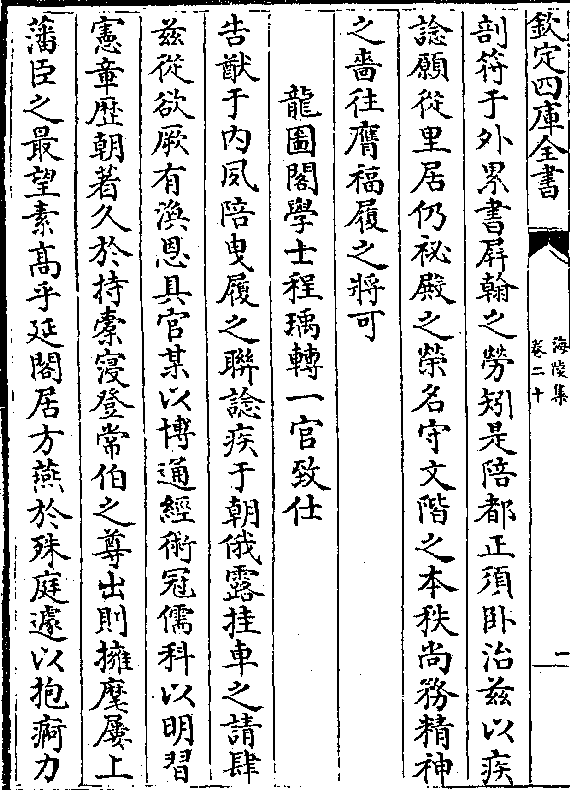 欽定四庫全書
海陵集
卷二十
一
剖符于外累書屏翰之勞矧是陪都正須卧治兹以疾
諗願從里居仍祕殿之榮名守文階之本秩尚務精神
之嗇往膺福履之將可
龍圖閣學士程瑀轉一官致仕
告猷于内夙陪曳履之聯諗疾于朝俄露挂車之請肆
兹從欲厥有渙恩具官某以博通經術冠儒科以明習
憲章歴朝著久於持橐寖登常伯之尊出則擁麾屢上
藩臣之最望素髙乎延閣居方燕於殊庭遽以抱痾力